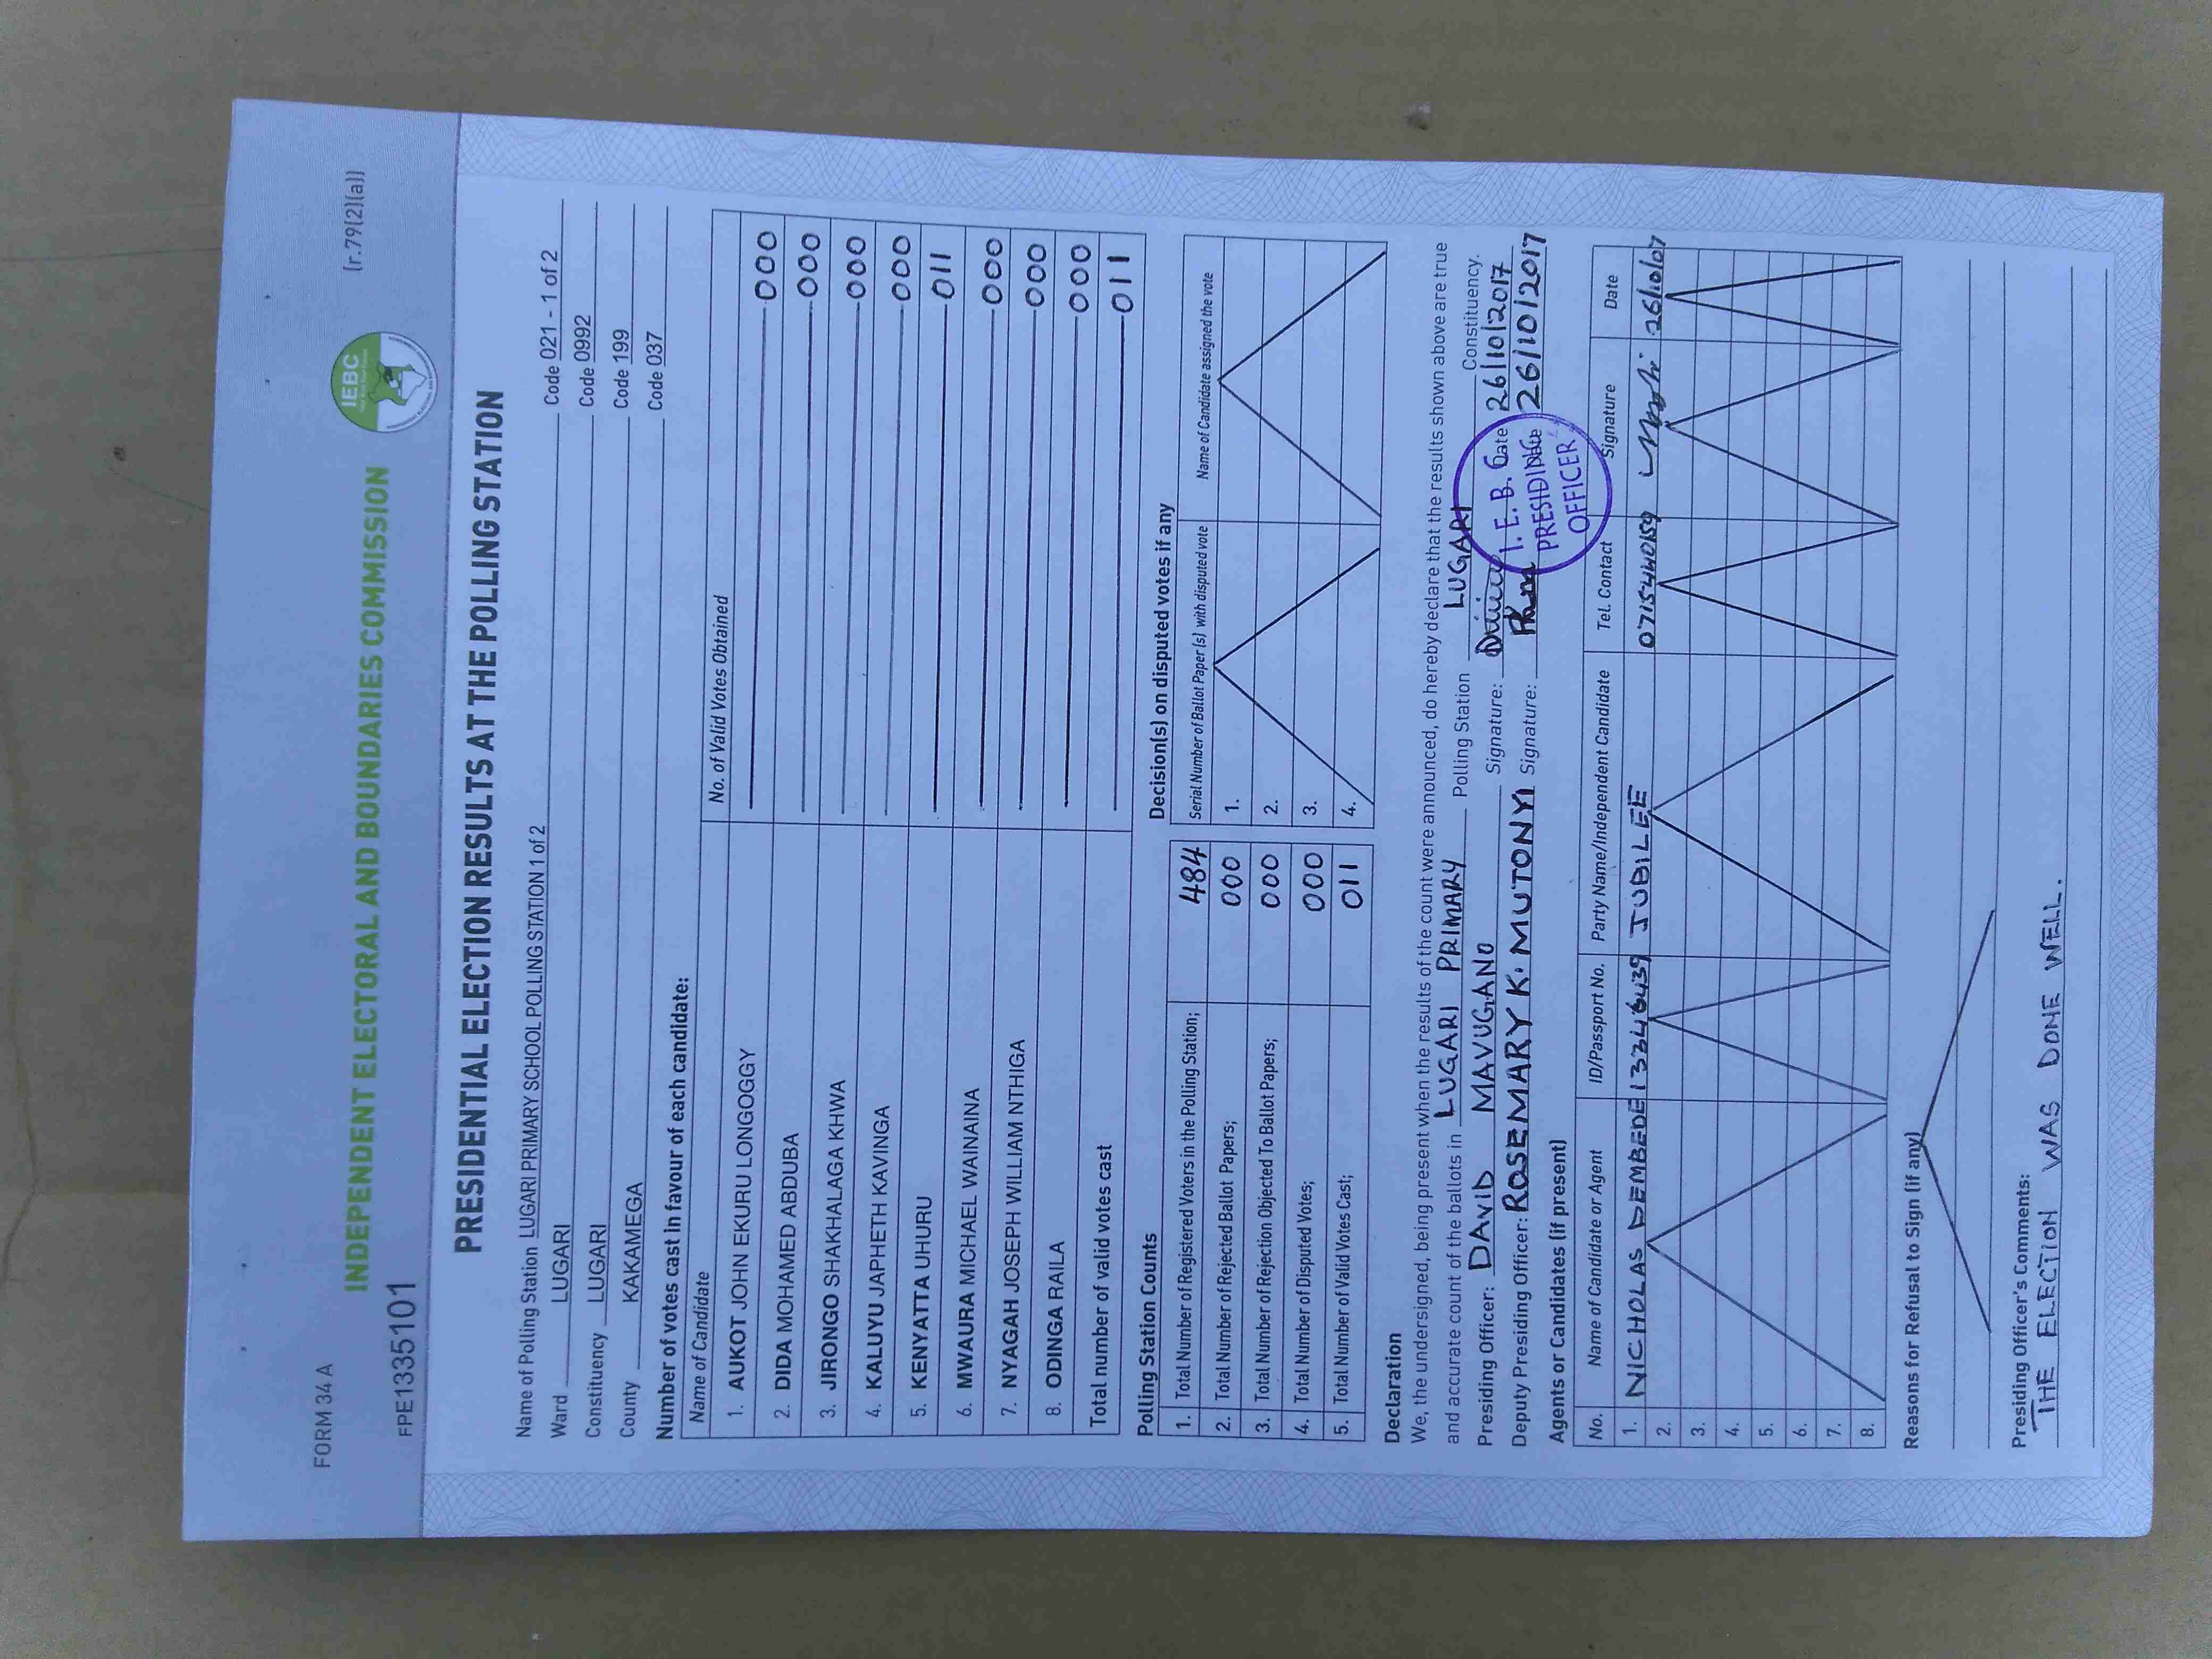 FORM 34 A
(r.79(2)(a))
IEBC
INDEPENDENT ELECTORAL AND BOUNDARIES COMMISSION
FPE1335101
PRESIDENTIAL ELECTION RESULTS AT THE POLLING STATION
Name of Polling Station LUGARI PRIMARY SCHOOL POLLING STATION 1 of 2 Code 021 - 1 of 2
Ward LUGARI Code 0992
Constituency LUGARI Code 199
County KAKAMEGA Code 037
Number of votes cast in favour of each candidate:
Name of Candidate No. of Valid Votes Obtained
1. AUKOT JOHN EKURU LONGOGGY 000
2. DIDA MOHAMED ABDUBA 000
3. JIRONGO SHAKHALAGA KHWA 000
4. KALUYU JAPHETH KAVINGA 000
5. KENYATTA UHURU 011
6. MWAURA MICHAEL WAINAINA 000
7. NYAGAH JOSEPH WILLIAM NTHIGA 000
8. ODINGA RAILA 000
Total number of valid votes cast 011
Polling Station Counts
1. Total Number of Registered Voters in the Polling Station; 484
2. Total Number of Rejected Ballot Papers; 000
3. Total Number of Rejection Objected To Ballot Papers; 000
4. Total Number of Disputed Votes; 000
5. Total Number of Valid Votes Cast; 011
Decision(s) on disputed votes if any
Serial Number of Ballot Paper (s) with disputed vote Name of Candidate assigned the vote
1.
2.
3.
4.
Declaration
We, the undersigned, being present when the results of the count were announced, do hereby declare that the results shown above are true
and accurate count of the ballots in LUGARI PRIMARY Polling Station LUGARI Constituency.
Presiding Officer: DAVID MAVUGANO Signature: Date 26/10/2017
Deputy Presiding Officer: ROSEMARY K. MUTONYI Signature: Date 26/10/2017
I. E. B. C
PRESIDING
OFFICER
Agents or Candidates (if present)
No. Name of Candidate or Agent ID/Passport No. Party Name/Independent Candidate Tel. Contact Signature Date
1. NICHOLAS DEMBEDE 13346439 JUBILEE 0715440159
2.
3.
4.
5.
6.
7.
8.
Reasons for Refusal to Sign (if any)
Presiding Officer's Comments:
THE ELECTION WAS DONE WELL.